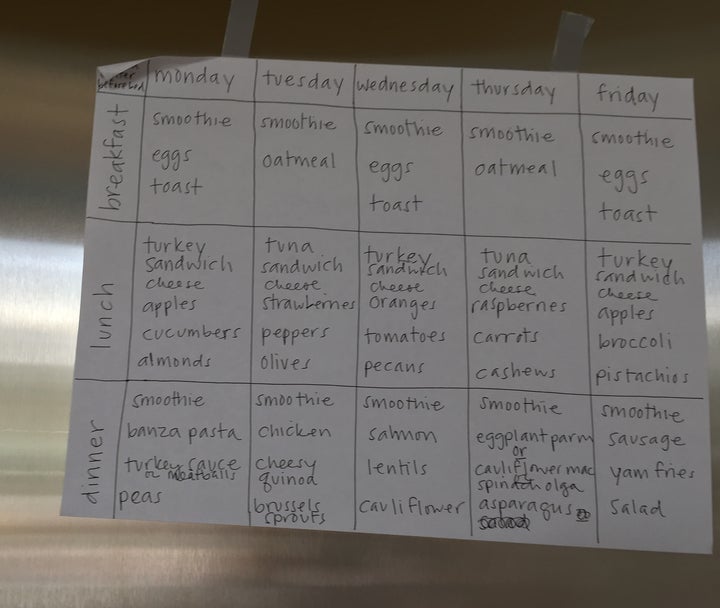 before bed
monday
tuesday
wednesday
thursday
friday
breakfast
smoothie
eggs
toast
smoothie
oatmeal
smoothie
eggs
toast
smoothie
oatmeal
smoothie
eggs
toast
lunch
turkey
sandwich
cheese
apples
cucumbers
almonds
tuna
sandwich
cheese
strawberries
peppers
olives
turkey
sandwich
cheese
oranges
tomatoes
pecans
tuna
sandwich
cheese
raspberries
carrots
cashews
turkey
sandwich
cheese
apples
broccoli
pistachios
dinner
smoothie
banza pasta
turkey sauce
or meatballs
peas
smoothie
chicken
cheesy
quinoa
brussels
sprouts
smoothie
salmon
lentils
cauliflower
smoothie
eggplant parm
or
cauliflower mac
or
spinach
asparagus
smoothie
sausage
yam fries
salad